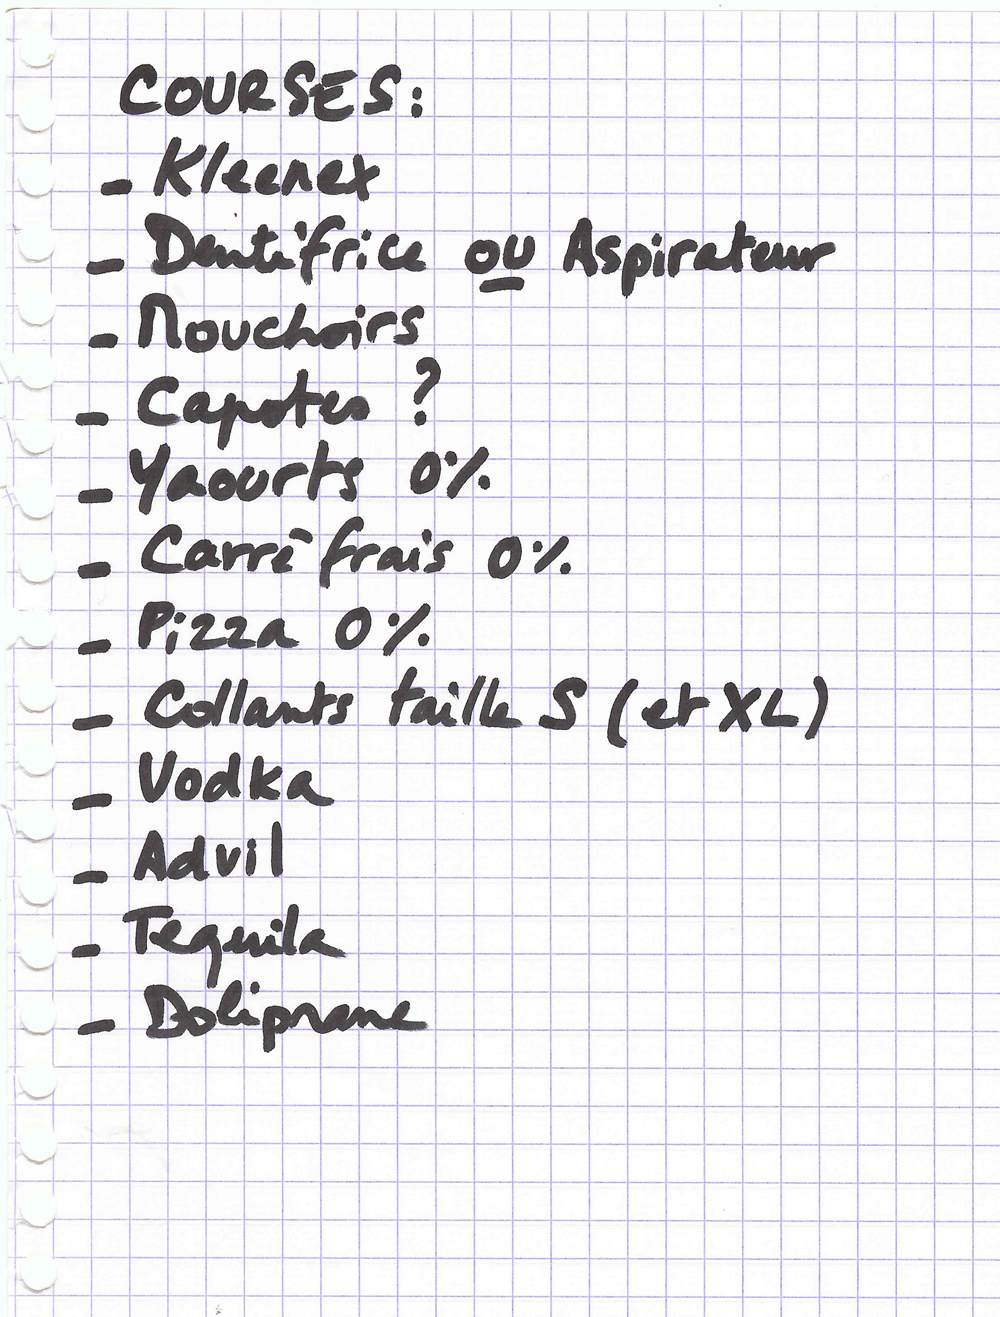 COURSES:
- Kleenex
- Dentifrice ou Aspirateur
- Mouchoirs
- Capotes ?
- Yaourts 0%
- Carré frais 0%
- Pizza 0%
- Collants taille S (et XL)
- Vodka
- Advil
- Tequila
- Doliprane